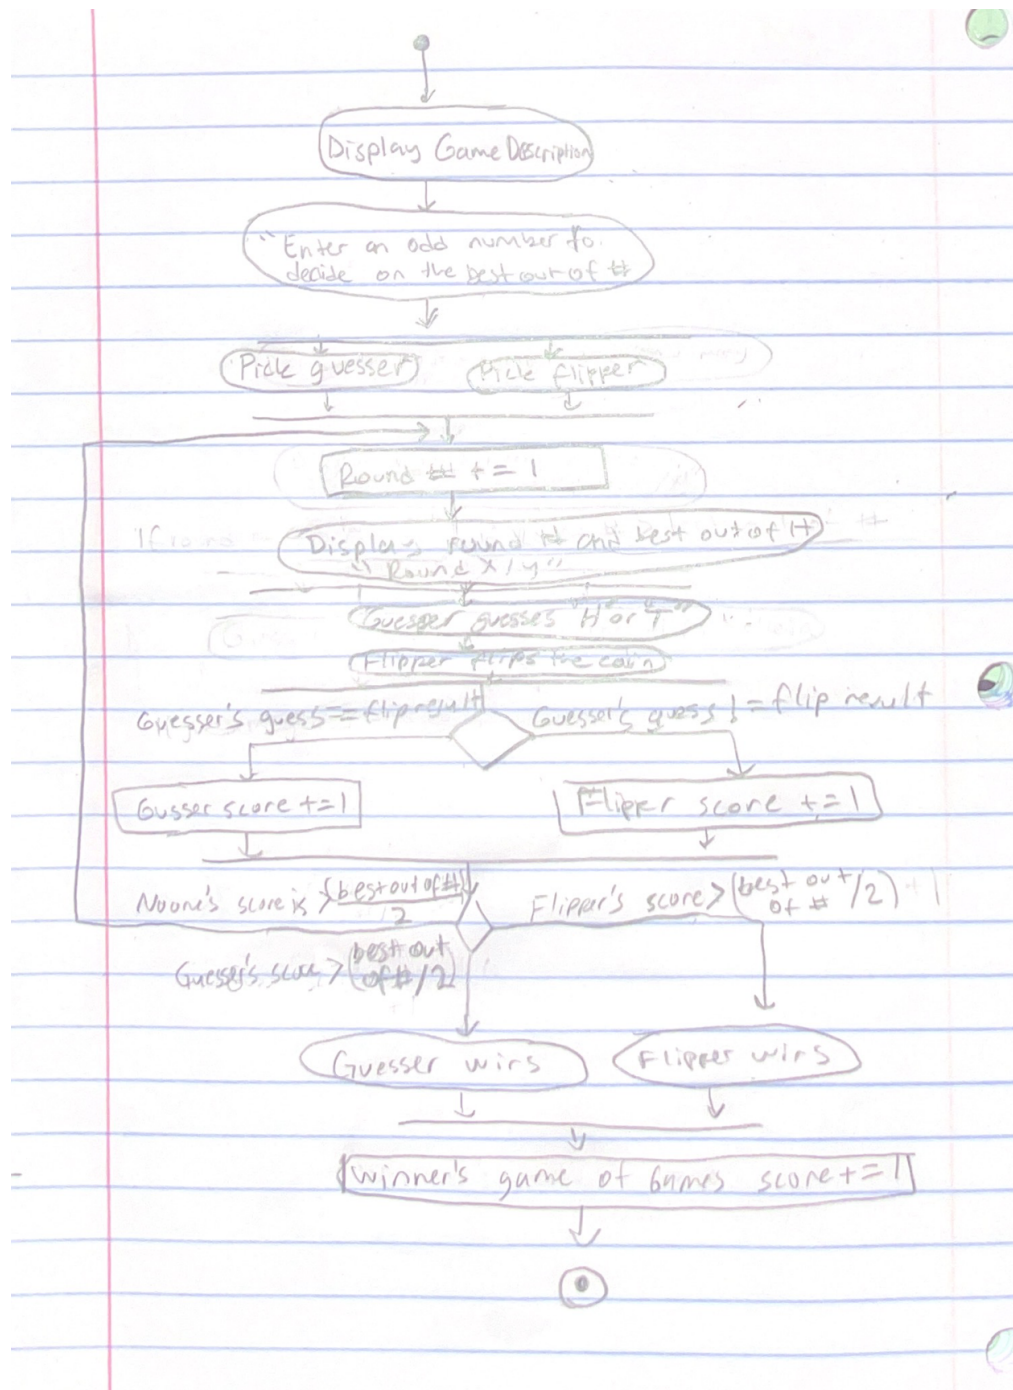 Display Game Description
"Enter an odd number to
decide on the best out of #
Pick guesser
Pick flipper
Round # += 1
If round
Display round # and best out of #
"Round X/y"
Guesser guesses "H" or "T"
Flipper flips the coin
Guesser's guess == flip result
Guesser's guess != flip result
Gusser score += 1
Flipper score += 1
No one's score is > (best out of #)
2
Flipper's score > (best out
of # /2)
Guesser's score > (best out
of #/2)
Guesser wins
Flipper wins
Winner's game of Games score += 1